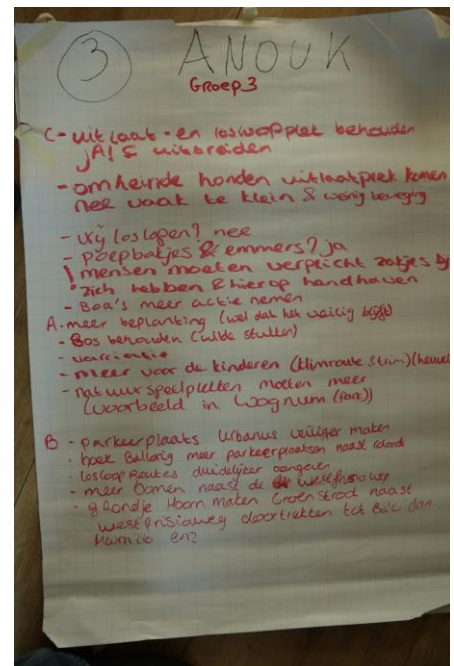 3 ANOUK
Groep 3
C - uitlaat - en losloopplek behouden
jA! & uitbreiden
- omheinde honden uitlaatplek komen
nee vaak te klein & weinig beweging
- vrij loslopen? nee
- poepbakjes & emmers? ja
! mensen moeten verplicht zakjes bij
zich hebben & hier op handhaven
- Boa's meer actie nemen
A. meer beplanting (wel dat het veilig blijft)
- Bos behouden (wilde stukken)
- varriatie
- meer voor de kinderen (klimroute & trim) (heuvel
- natuurspeelplekken maken meer
(voorbeeld in Wognum (park))
B - parkeerplaats Urbanus veiliger maken
- hoek Ballorig meer parkeerplaatsen naast
- losloop Routes duidelijker aangeven
- meer Bomen naast de westfrisiaweg
- Rondje Hoorn maken Groen strook naast
westfrisiaweg doortrekken tot dan